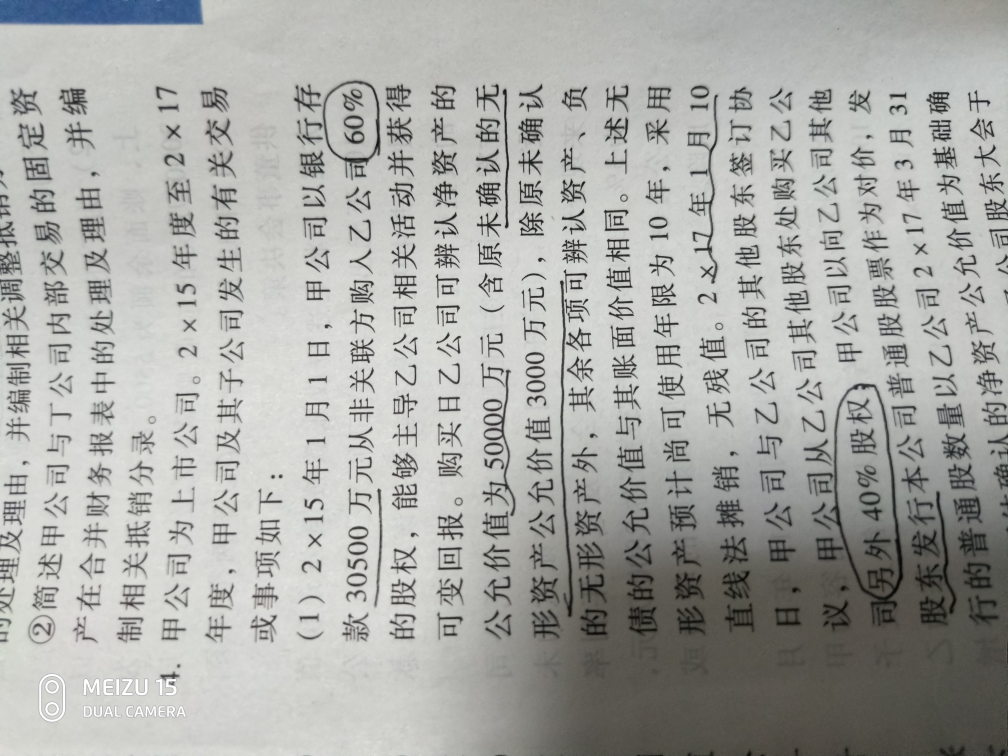 的处理及理由，并编制相关调整抵销分
②简述甲公司与丁公司内部交易的固定资
产在合并财务报表中的处理及理由，并编
制相关抵销分录。
4. 甲公司为上市公司。2×15年度至2×17
年度，甲公司及其子公司发生的有关交易
或事项如下：
（1）2×15年1月1日，甲公司以银行存
款30500万元从非关联方购入乙公司60%
的股权，能够主导乙公司相关活动并获得
可变回报。购买日乙公司可辨认净资产的
公允价值为50000万元（含原未确认的无
形资产公允价值3000万元），除原未确认
的无形资产外，其余各项可辨认资产、负
债的公允价值与其账面价值相同。上述无
形资产预计尚可使用年限为10年，采用
直线法摊销，无残值。2×17年1月10
日，甲公司与乙公司的其他股东签订协
议，甲公司从乙公司其他股东处购买乙公
司另外40%股权，甲公司以向乙公司其他
股东发行本公司普通股股票作为对价，发
行的普通股数量以乙公司2×17年3月31
确认的净资产公允价值为基础确
公司股东大会于
MEIZU 15
DUAL CAMERA